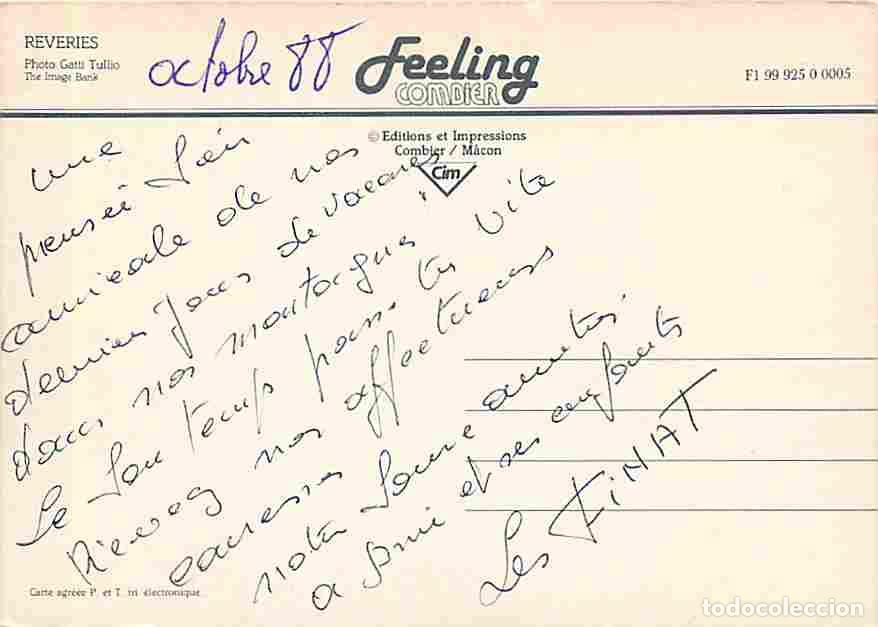 REVERIES
Photo Gatti Tullio
The Image Bank
octobre 88
Feeling
COMBIER
F1 99 925 0 0005
© Editions et Impressions
Combier / Mâcon
Cim
une
pensée
amicale de nos
derniers jours de vacances
dans nos montagnes
Le temps passe très vite
Recevez nos affectueuses
caresses
notre amitiés
a et ses enfants
Les FINAT
Carte agréée P. et T. tri électronique
todocoleccion